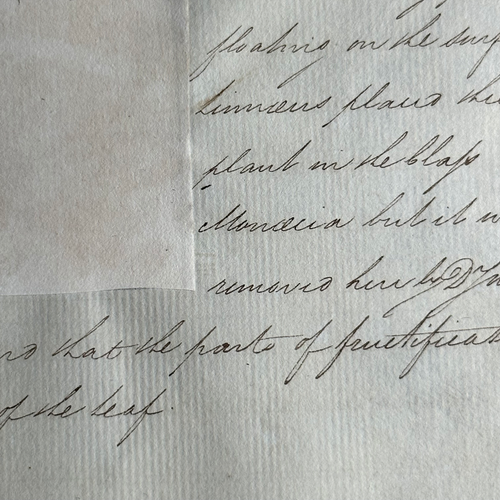 floating on the surf
Linnæus placed this
plant in the Class
Monœcia but it w
removed here by Dr
nd that the parts of fructificat
of the leaf.